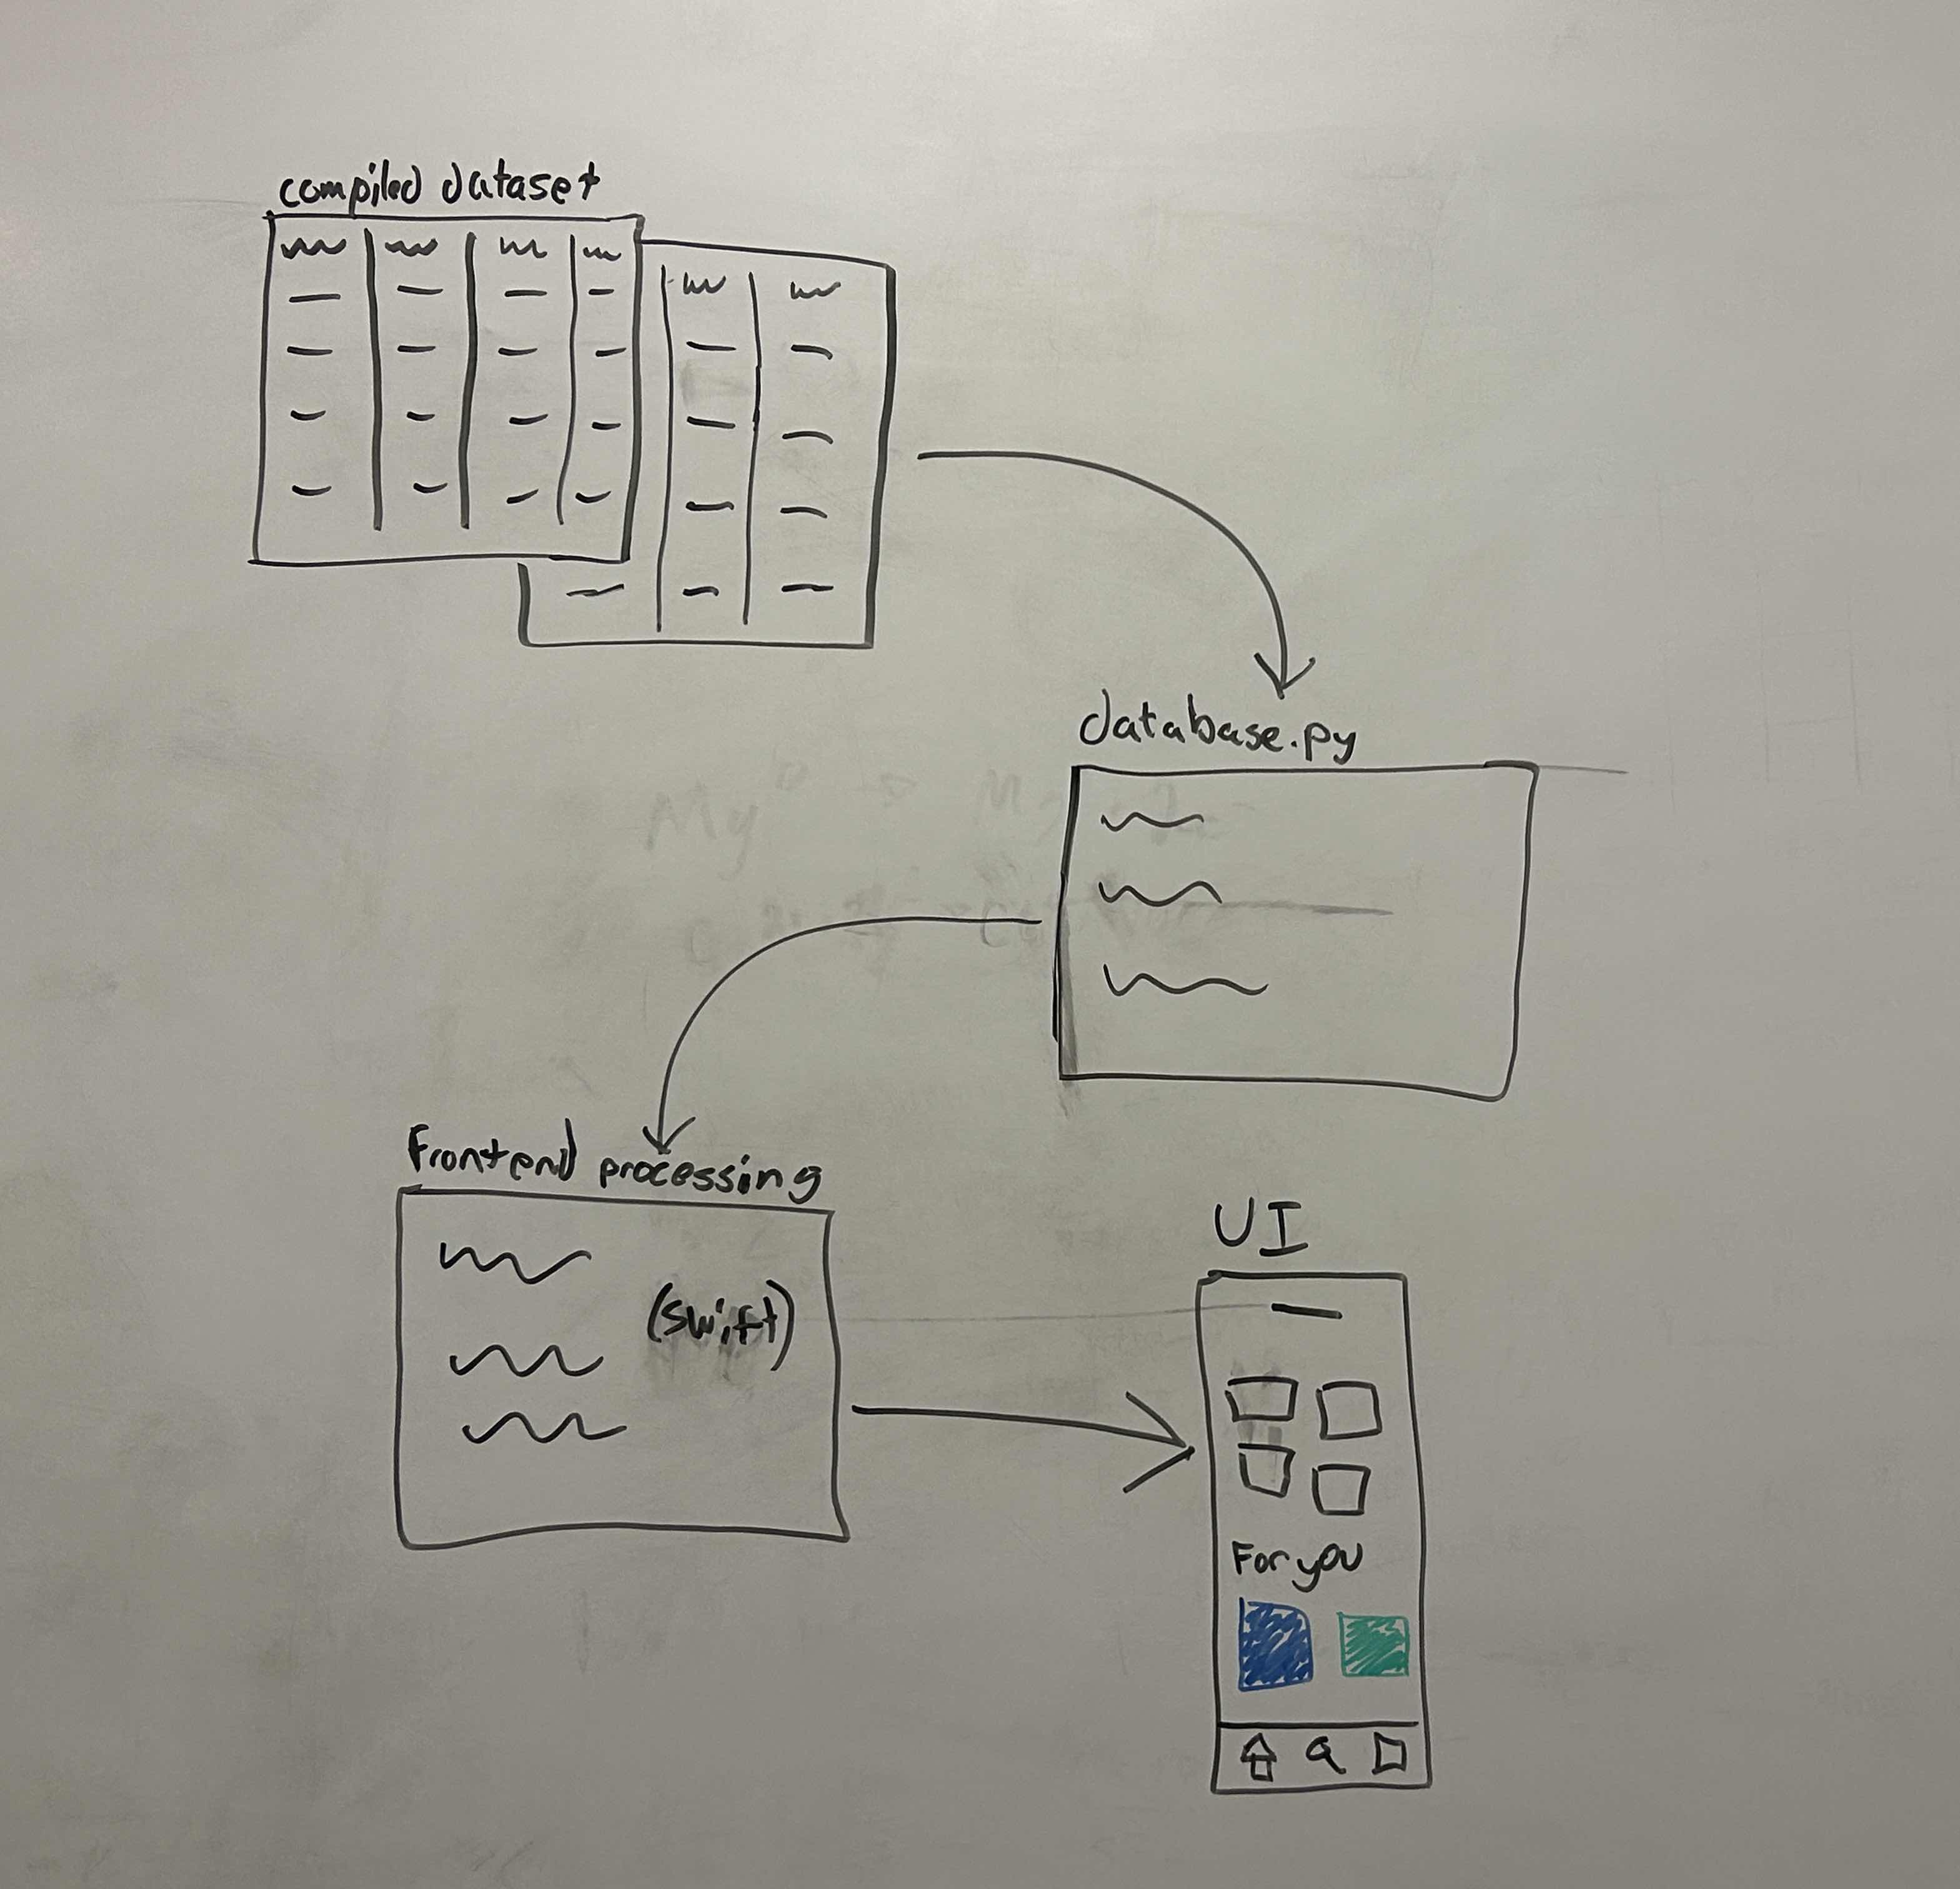 compiled dataset
database.py
Frontend processing
(swift)
UI
For you